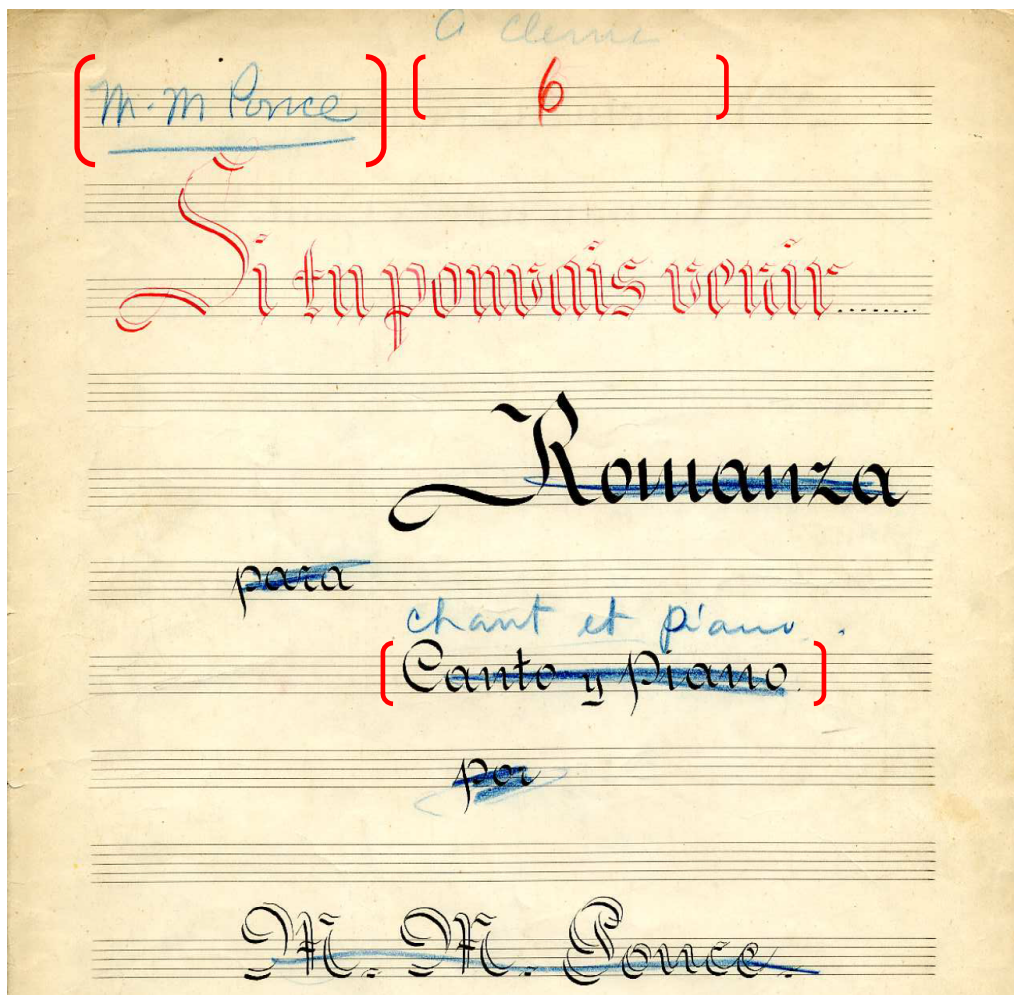 A Clema
M. M Ponce 6
Si tu pouvais venir........
Romanza
para
chant et piano.
Canto y Piano.
por
M. M. Ponce.